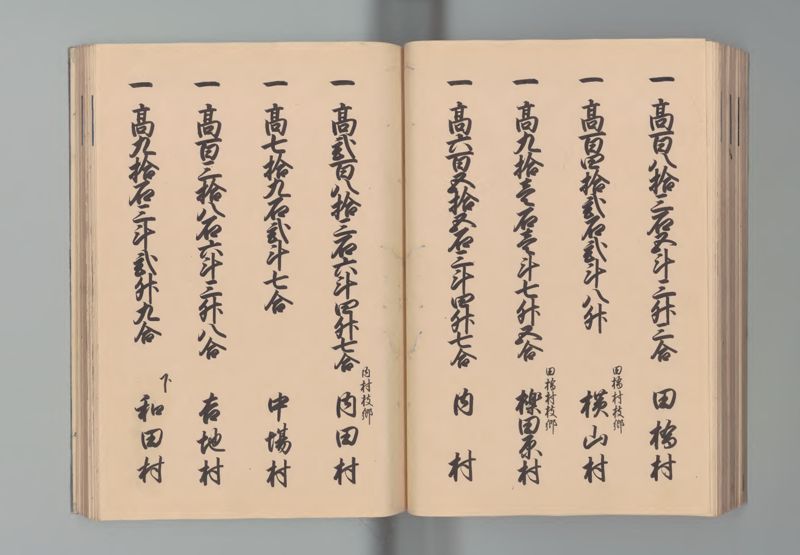 一 高百八拾三石五斗三升三合 田橋村
一 高百四拾弐石弐斗八升 田橋村枝郷 横山村
一 高九拾壱石壱斗七升五合 田橋村枝郷 櫟田原村
一 高六百五拾五石三斗四升七合 内村
一 高弐百八拾三石六斗四升七合 内村枝郷 内田村
一 高七拾九石弐斗七合 中場村
一 高百三拾八石六斗三升八合 吉地村
一 高九拾石三斗弐升九合 下和田村